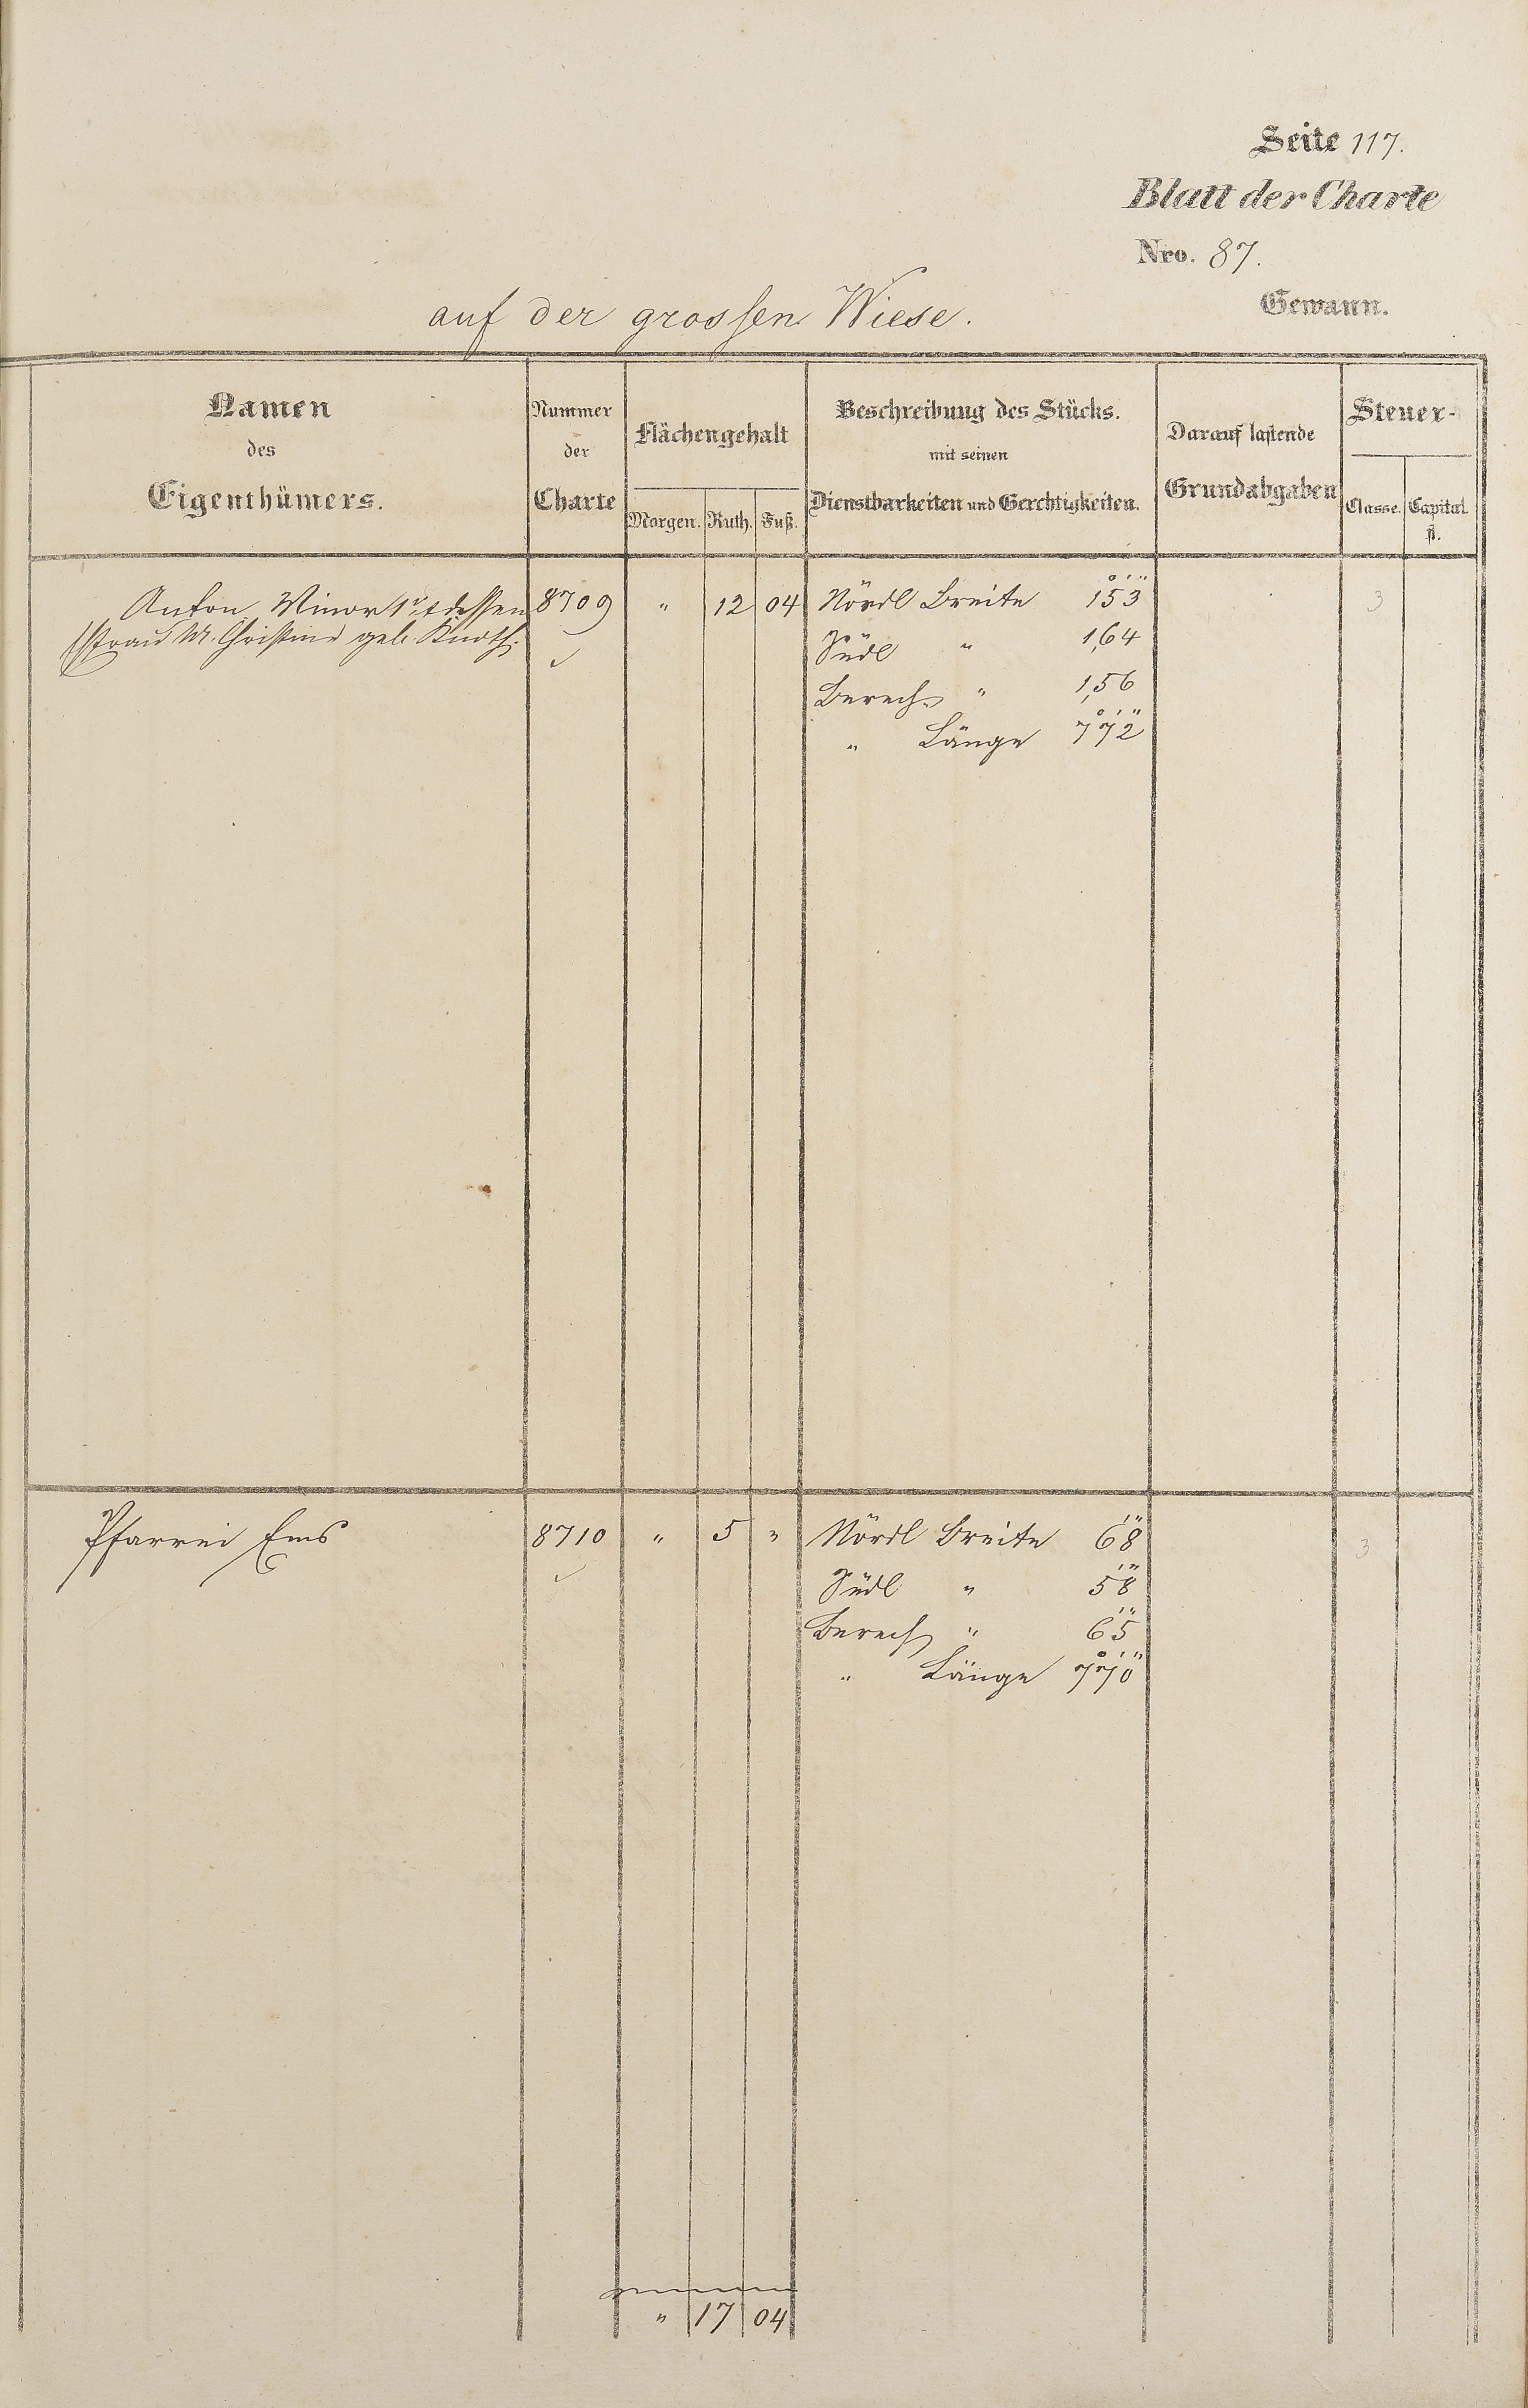 Seite 117.
Blatt der Charte
Nro. 87.
auf der grossen Wiese. Gewann.
Namen des Eigenthümers.
Nummer der Charte
Flächengehalt
Morgen. Ruth. Fuß.
Beschreibung des Stücks.
mit seinen
Dienstbarkeiten und Gerechtigkeiten.
Darauf lastende
Grundabgaben
Steuer-
Classe. Capital
fl.
Anton Minor 1r & dessen 8709 " 12 04 Nördl Breite 1°5'3" 3
Frau M. Christine geb. Knoth. Südl " 1,64
Berech. " 1,56
" Länge 7°7'2"
Pfarrei Ems 8710 " 5 " Nördl Breite 6'8" 3
Südl " 5'8"
Berech " 6'5"
" Länge 7°7'0"
" 17 04